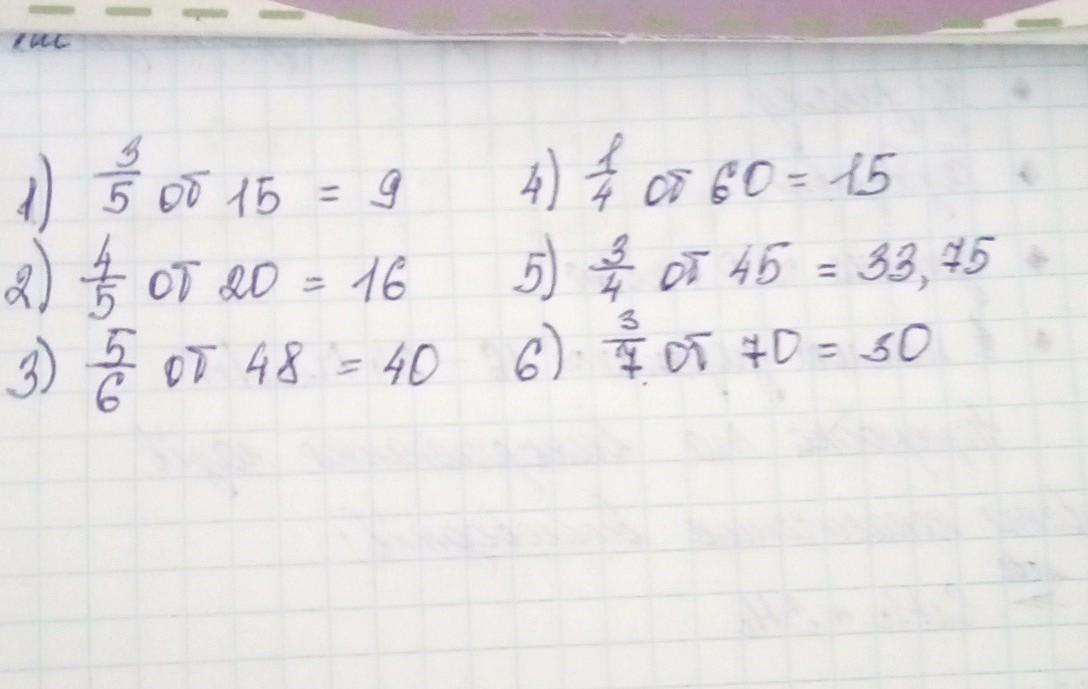 1) 3/5 от 15 = 9
2) 4/5 от 20 = 16
3) 5/6 от 48 = 40
4) 1/4 от 60 = 15
5) 3/4 от 45 = 33,75
6) 3/7 от 70 = 30